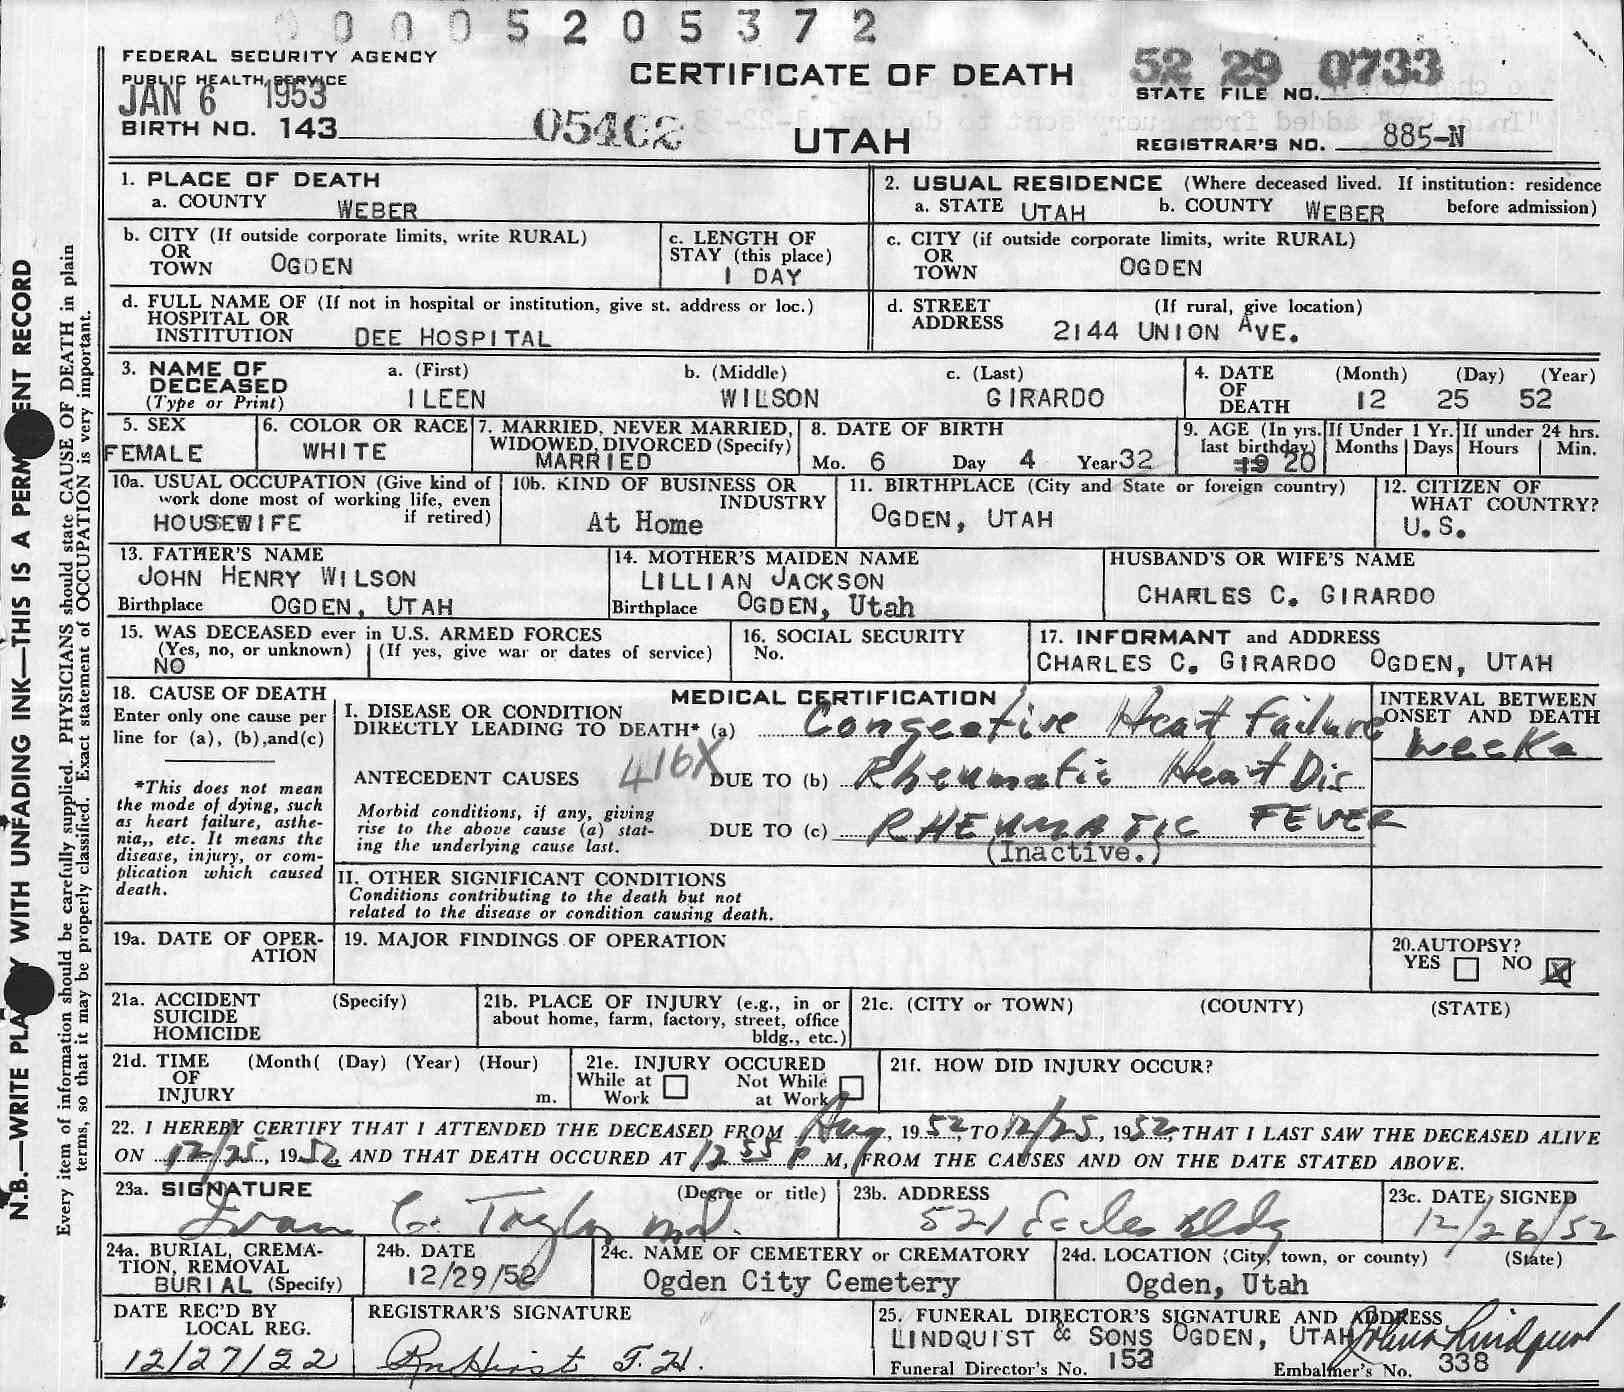 0 0 0 5 2 0 5 3 7 2
FEDERAL SECURITY AGENCY
PUBLIC HEALTH SERVICE
JAN 6 1953
CERTIFICATE OF DEATH
52 29 0733
STATE FILE NO.
BIRTH NO. 143
05402
UTAH
REGISTRAR'S NO. 885-N
1. PLACE OF DEATH
a. COUNTY WEBER
2. USUAL RESIDENCE (Where deceased lived. If institution: residence before admission)
a. STATE UTAH b. COUNTY WEBER
b. CITY (If outside corporate limits, write RURAL)
OR
TOWN OGDEN
c. LENGTH OF
STAY (this place)
1 DAY
c. CITY (if outside corporate limits, write RURAL)
OR
TOWN OGDEN
d. FULL NAME OF (If not in hospital or institution, give st. address or loc.)
HOSPITAL OR
INSTITUTION DEE HOSPITAL
d. STREET (If rural, give location)
ADDRESS 2144 UNION AVE.
3. NAME OF
DECEASED
(Type or Print)
a. (First) b. (Middle) c. (Last)
ILEEN WILSON GIRARDO
4. DATE (Month) (Day) (Year)
OF
DEATH 12 25 52
5. SEX
FEMALE
6. COLOR OR RACE
WHITE
7. MARRIED, NEVER MARRIED,
WIDOWED, DIVORCED (Specify)
MARRIED
8. DATE OF BIRTH
Mo. 6 Day 4 Year 32
9. AGE (In yrs.
last birthday)
19 20
If Under 1 Yr.
Months Days
If under 24 hrs.
Hours Min.
10a. USUAL OCCUPATION (Give kind of
work done most of working life, even
if retired)
HOUSEWIFE
10b. KIND OF BUSINESS OR
INDUSTRY
At Home
11. BIRTHPLACE (City and State or foreign country)
OGDEN, UTAH
12. CITIZEN OF
WHAT COUNTRY?
U.S.
13. FATHER'S NAME
JOHN HENRY WILSON
Birthplace OGDEN, UTAH
14. MOTHER'S MAIDEN NAME
LILLIAN JACKSON
Birthplace OGDEN, Utah
HUSBAND'S OR WIFE'S NAME
CHARLES C. GIRARDO
15. WAS DECEASED ever in U.S. ARMED FORCES
(Yes, no, or unknown) (If yes, give war or dates of service)
NO
16. SOCIAL SECURITY
No.
17. INFORMANT and ADDRESS
CHARLES C. GIRARDO OGDEN, UTAH
18. CAUSE OF DEATH
Enter only one cause per
line for (a), (b),and(c)
*This does not mean
the mode of dying, such
as heart failure, asthe-
nia,, etc. It means the
disease, injury, or com-
plication which caused
death.
MEDICAL CERTIFICATION
I. DISEASE OR CONDITION
DIRECTLY LEADING TO DEATH* (a) Congestive Heart Failure
INTERVAL BETWEEN
ONSET AND DEATH
weeks
ANTECEDENT CAUSES 416X DUE TO (b) Rheumatic Heart Dis
Morbid conditions, if any, giving
rise to the above cause (a) stat-
ing the underlying cause last.
DUE TO (c) RHEUMATIC FEVER
(Inactive.)
II. OTHER SIGNIFICANT CONDITIONS
Conditions contributing to the death but not
related to the disease or condition causing death.
19a. DATE OF OPER-
ATION
19. MAJOR FINDINGS OF OPERATION
20.AUTOPSY?
YES NO X
21a. ACCIDENT (Specify)
SUICIDE
HOMICIDE
21b. PLACE OF INJURY (e.g., in or
about home, farm, factory, street, office
bldg., etc.)
21c. (CITY or TOWN) (COUNTY) (STATE)
21d. TIME (Month( (Day) (Year) (Hour)
OF
INJURY m.
21e. INJURY OCCURED
While at Work Not While at Work
21f. HOW DID INJURY OCCUR?
22. I HEREBY CERTIFY THAT I ATTENDED THE DECEASED FROM Aug, 1952, TO 12/25, 1952, THAT I LAST SAW THE DECEASED ALIVE
ON 12/25, 1952, AND THAT DEATH OCCURED AT 12 55 P M, FROM THE CAUSES AND ON THE DATE STATED ABOVE.
23a. SIGNATURE (Degree or title)
Ivan C. Taylor M.D.
23b. ADDRESS
521 Eccles Bldg
23c. DATE SIGNED
12/26/52
24a. BURIAL, CREMA-
TION, REMOVAL
BURIAL (Specify)
24b. DATE
12/29/52
24c. NAME OF CEMETERY or CREMATORY
Ogden City Cemetery
24d. LOCATION (City, town, or county) (State)
Ogden, Utah
DATE REC'D BY
LOCAL REG.
12/27/22
REGISTRAR'S SIGNATURE
25. FUNERAL DIRECTOR'S SIGNATURE AND ADDRESS
LINDQUIST & SONS OGDEN, UTAH John Lindquist
Funeral Director's No. 153 Embalmer's No. 338
N.B.—WRITE PLA WITH UNFADING INK—THIS IS A PERM ENT RECORD
Every item of information should be carefully supplied. PHYSICIANS should state CAUSE OF DEATH in plain
terms, so that it may be properly classified. Exact statement of OCCUPATION is very important.